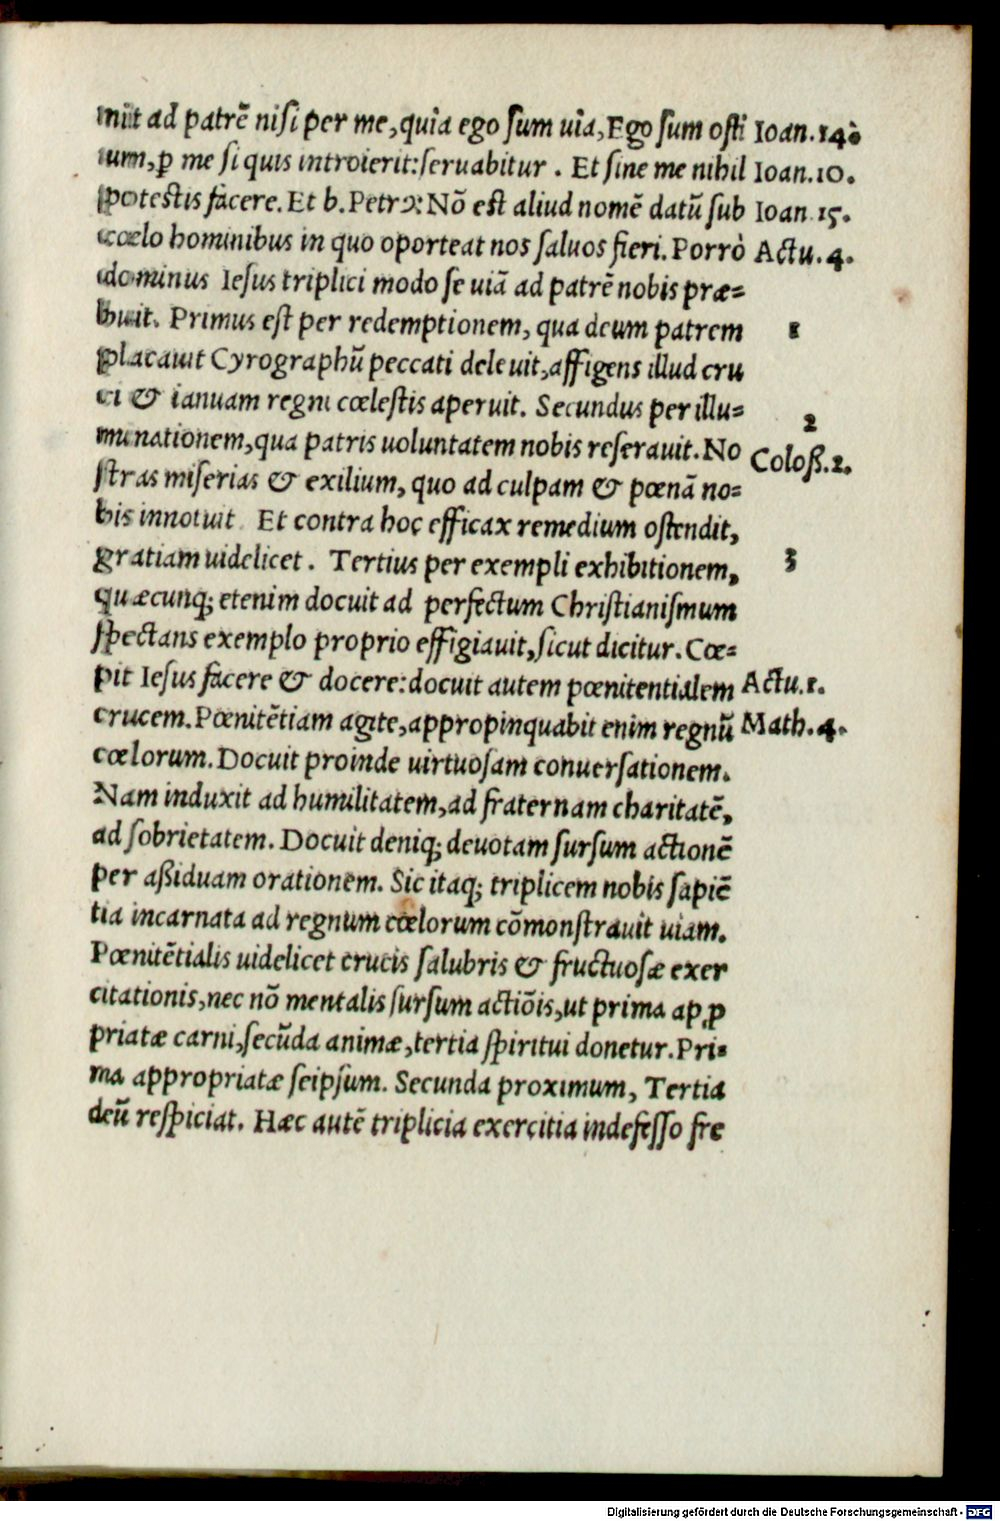 nit ad patrē nisi per me, quia ego sum uia, Ego sum osti Ioan. 14.
um, ꝑ me si quis introierit: seruabitur . Et sine me nihil Ioan. 10.
potestis facere. Et b. Petrꝰ: Nō est aliud nomē datū sub Ioan 15.
cœlo hominibus in quo oporteat nos saluos fieri. Porrò Actu. 4.
dominus Iesus triplici modo se uiā ad patrē nobis præ=
buit. Primus est per redemptionem, qua deum patrem 1
placauit Cyrographū peccati deleuit, affigens illud cru
ci & ianuam regni cœlestis aperuit. Secundus per illu= 2
minationem, qua patris uoluntatem nobis reserauit. No Coloß. 2.
stras miserias & exilium, quo ad culpam & pœnā no=
bis innotuit Et contra hoc efficax remedium ostendit,
gratiam uidelicet . Tertius per exempli exhibitionem, 3
quæcunq; etenim docuit ad perfectum Christianismum
spectans exemplo proprio effigiauit, sicut dicitur. Cœ=
pit Iesus facere & docere: docuit autem pœnitentialem Actu. 1.
crucem. Pœnitētiam agite, appropinquabit enim regnū Math. 4.
cœlorum. Docuit proinde uirtuosam conuersationem.
Nam induxit ad humilitatem, ad fraternam charitatē,
ad sobrietatem. Docuit deniq; deuotam sursum actionē
per aßiduam orationem. Sic itaq; triplicem nobis sapiē
tia incarnata ad regnum cœlorum cōmonstrauit uiam.
Pœnitētialis uidelicet crucis salubris & fructuosæ exer
citationis, nec nō mentalis sursum actiōis, ut prima apꝓ
priatæ carni, secūda animæ, tertia spiritui donetur. Pri=
ma appropriatæ seipsum. Secunda proximum, Tertia
deū respiciat. Hæc autē triplicia exercitia indefesso fre
Digitalisierung gefördert durch die Deutsche Forschungsgemeinschaft - DFG